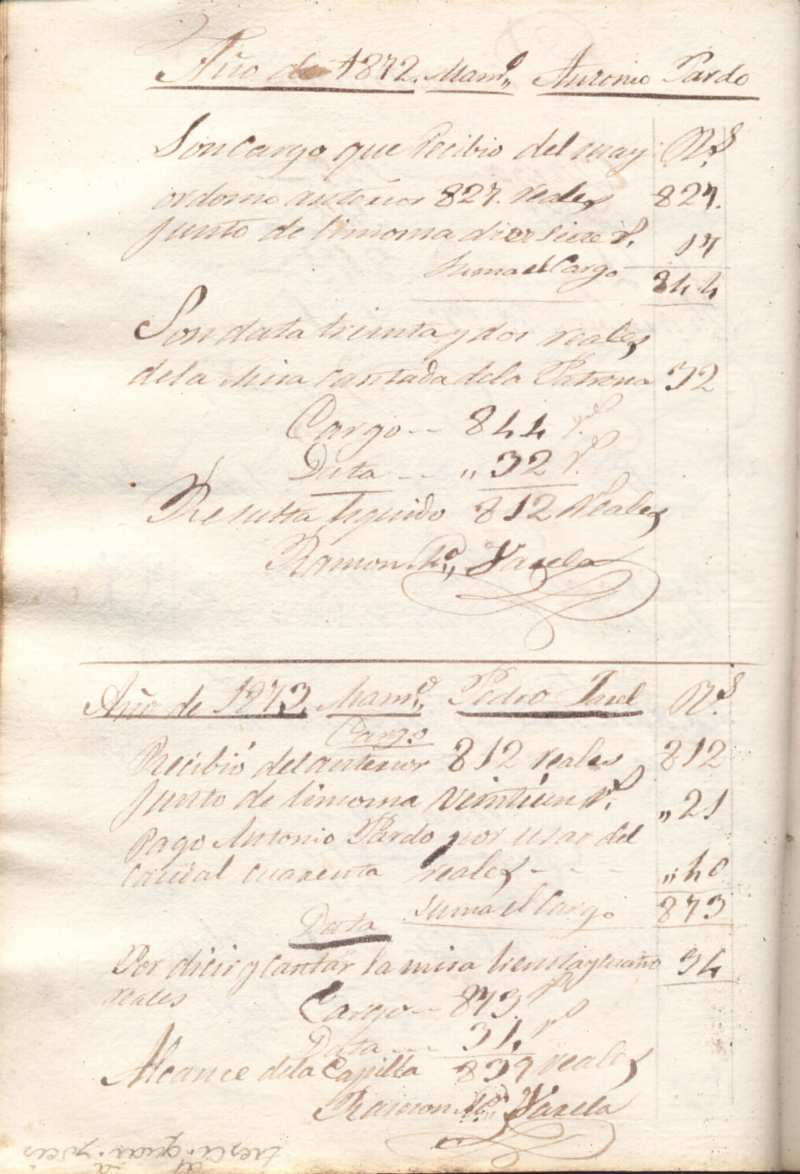 Año de 1872. Mam.º Antonio Pardo
Son cargo que Recibio del may R.s
ordomo anterior 827. reales 827.
Junto de limosna diez siete r.s 17
suma el Cargo 844
Son data treinta y dos reales
de la Misa cantada de la Patrona 32
Cargo -- 844 r.s
Data -- „ 32 r.s
Resulta liquido 812 Reales
Ramon M.ª Varela
Año de 1873. Mam.º Pedro R.s
Cargo
Recibió del anterior 812 reales 812
Junto de limosna veintiún r.s „ 21
Pago Antonio Pardo por usar del
caudal cuarenta reales - - - „ 40
Data suma el Cargo 873
Por dicir y cantar la misa treinta y cuatro 34
reales
Cargo -- 873 r.s
Data -- 34 r.s
Alcance de la Capilla 839 reales
Ramon M.ª Varela